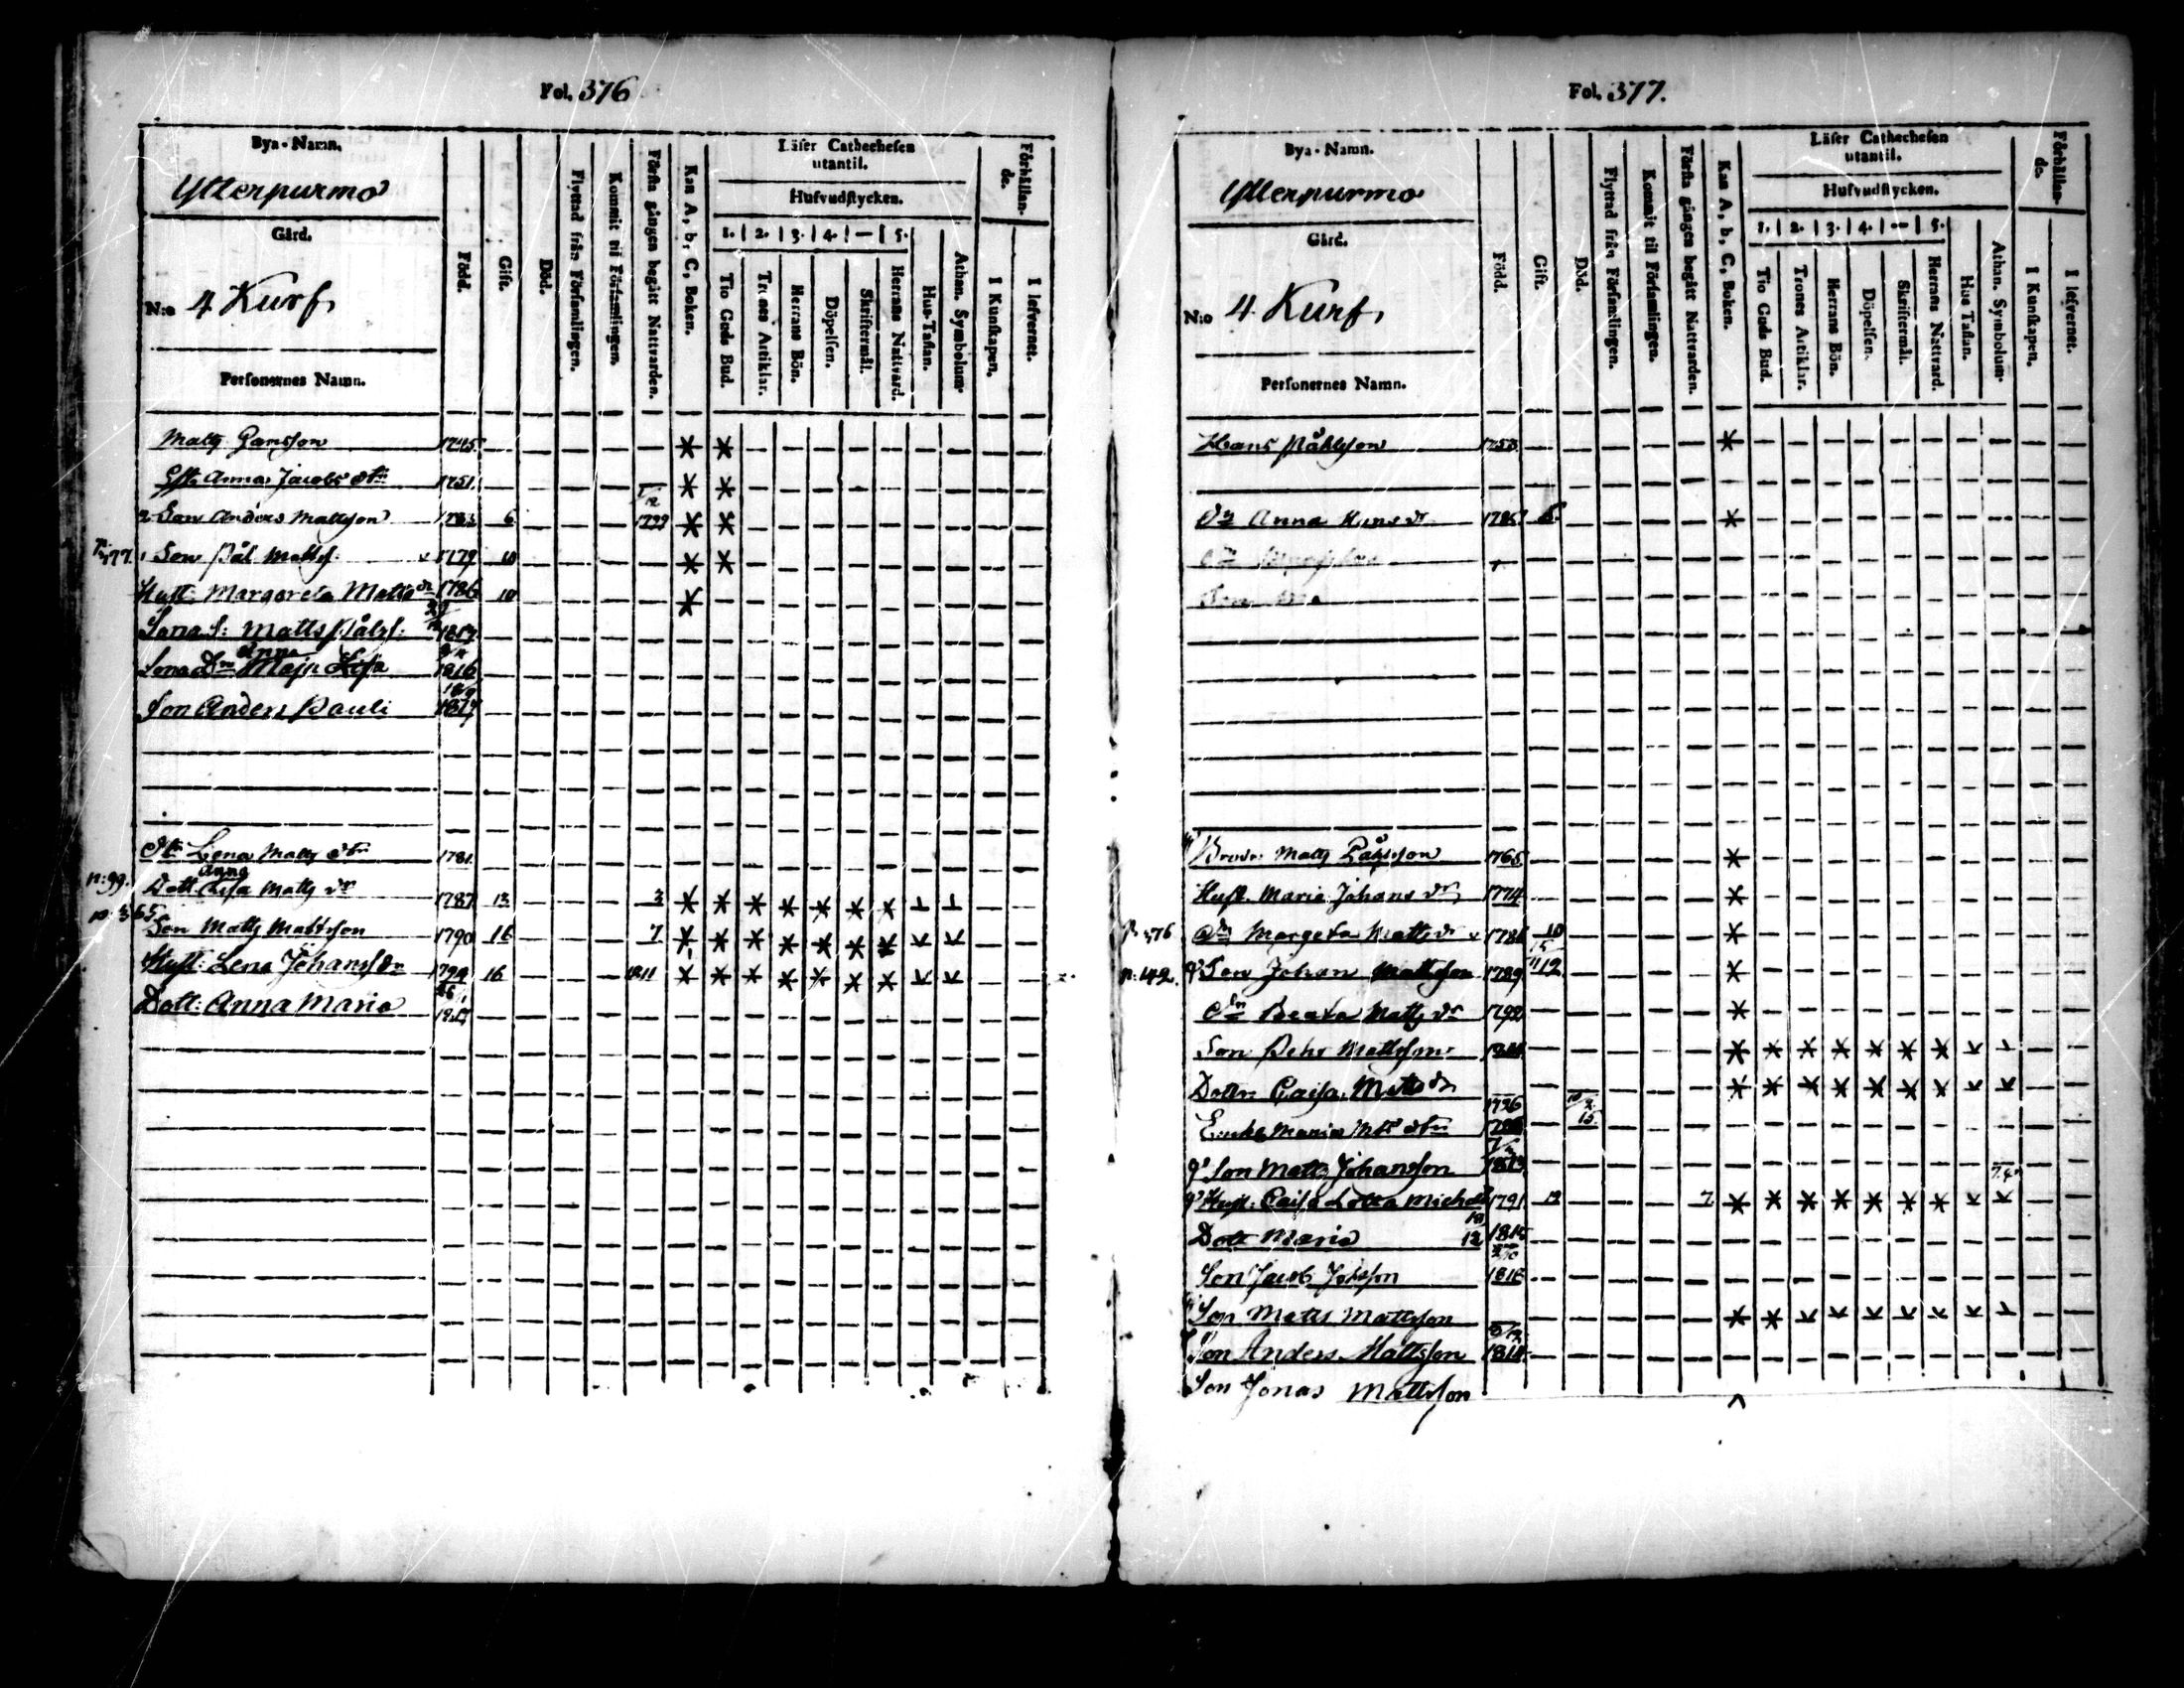 Fol. 376
Bya-Namn.
Ytterpurmo
Gård.
N:o 4 Kurf
Personernes Namn.
Född.
Gift.
Död.
Flyttad från Församlingen.
Kommit til Församlingen.
Första gången begått Nattvarden.
Kan A, b, C, Boken.
Läser Cathechesen
utantil.
Hufvudstycken.
1. 2. 3. 4. — 5.
Tio Guds Bud.
Trones Artiklar.
Herrans Bön.
Döpelsen.
Skriftermål.
Herrans Nattvard.
Hus-Taflan.
Athan. Symbolum.
Förhållan-
de.
I Kunskapen.
I lefvernet.
Matts 1745
Anna Jacobs dtr 1751
Son Anders Mattson 1783 6 1799
Son Pål Matts. 1779 10
Hust: Margareta Matts dr 1786 10
Sona S: Matts Pålss:
Anna
Sona Dr Maja Lisa 1816
Son Anders Pauli 1817
Dtr Lena Matts dtr 1781
p: 99. Anna
Dott Lisa Matts dr 1787 13 3
p. 365
Son Matts Mattsson 1790 16 7
Hust: Lena Johans dr 1794 16 1811
Dott: Anna Maria
Fol. 377.
Bya-Namn.
Ytterpurmo
Gård.
N:o 4 Kurf
Personernes Namn.
Född.
Gift.
Död.
Flyttad från Församlingen.
Kommit til Församlingen.
Första gången begått Nattvarden.
Kan A, b, C, Boken.
Läser Cathechesen
utantil.
Hufvudstycken.
1. 2. 3. 4. — 5.
Tio Guds Bud.
Trones Artiklar.
Herrans Bön.
Döpelsen.
Skriftermål.
Herrans Nattvard.
Hus Taflan.
Athan. Symbolum.
Förhållan-
de.
I Kunskapen.
I lefvernet.
Hans Påhlsson
Dr Anna Hans dr
Matts Påhlsson 1765
Hust. Maria Johans dr 1774
p. 376 Dr Margeta Matts dr 1786 10
p: 142. Son Johan Mattsson 1789
Dr Beata Matts dr 1792
Son Pehr Mattsson
Dottr Caisa Matts dr 1796
Enka Maria Mts dtr
Son Matts Johansson
Hust: Caisa Lotta Michels 1791 12 7
Dott Maria 1815
Son Jacob Johsson 1818
Son Matts Mattsson
Son Anders Mattsson 1814
Son Jonas Mattsson